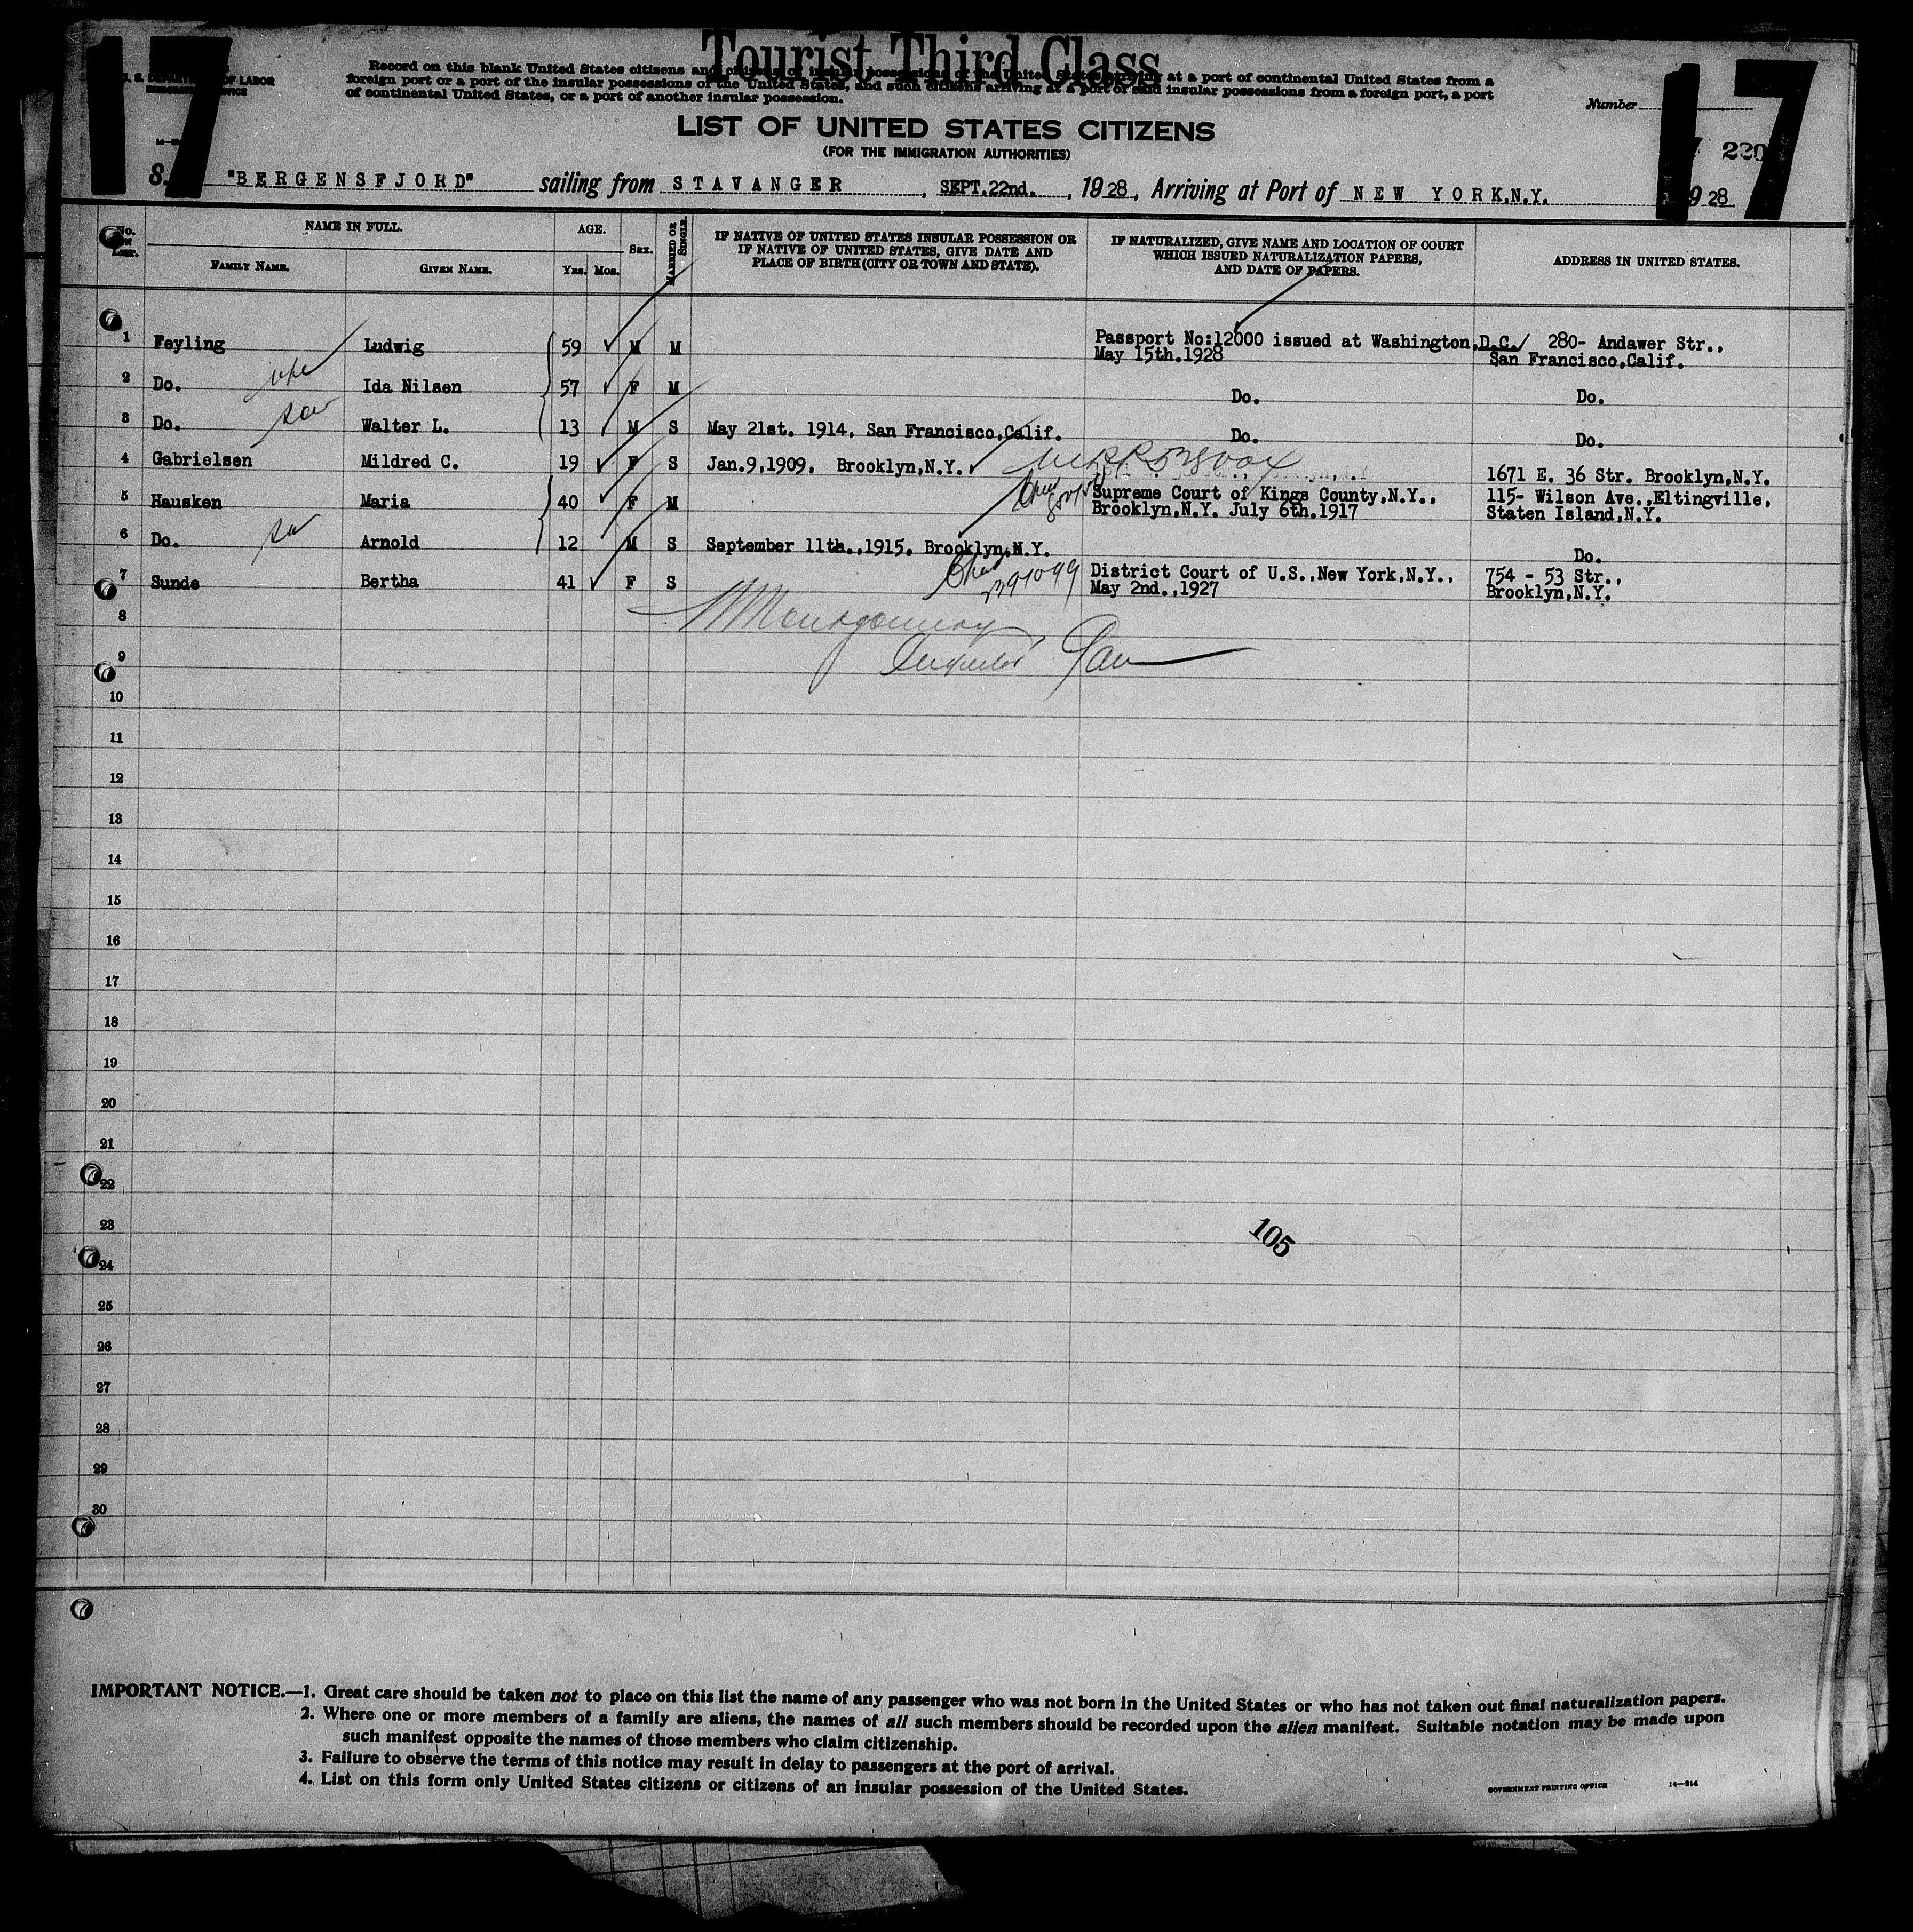 17
Tourist Third Class
17
U. S. DEPARTMENT OF LABOR
IMMIGRATION SERVICE
Record on this blank United States citizens and citizens of insular possessions of the United States arriving at a port of continental United States from a
foreign port or a port of the insular possessions of the United States, and such citizens arriving at a port of said insular possessions from a foreign port, a port
of continental United States, or a port of another insular possession.
Number
LIST OF UNITED STATES CITIZENS
(FOR THE IMMIGRATION AUTHORITIES)
230
S. "BERGENSFJORD" sailing from STAVANGER, SEPT.22nd., 1928, Arriving at Port of NEW YORK.N.Y. 1928
No. on List.
NAME IN FULL.
FAMILY NAME.
GIVEN NAME.
AGE.
YRS. MOS.
SEX.
MARRIED OR SINGLE.
IF NATIVE OF UNITED STATES INSULAR POSSESSION OR
IF NATIVE OF UNITED STATES, GIVE DATE AND
PLACE OF BIRTH (CITY OR TOWN AND STATE).
IF NATURALIZED, GIVE NAME AND LOCATION OF COURT
WHICH ISSUED NATURALIZATION PAPERS,
AND DATE OF PAPERS.
ADDRESS IN UNITED STATES.
1 Feyling Ludwig 59 M M Passport No:12000 issued at Washington,D.C. 280- Andawer Str.,
May 15th.1928 San Francisco,Calif.
2 Do. wife Ida Nilsen 57 F M Do. Do.
3 Do. son Walter L. 13 M S May 21st. 1914, San Francisco,Calif. Do. Do.
4 Gabrielsen Mildred C. 19 F S Jan.9,1909, Brooklyn,N.Y. 1671 E. 36 Str. Brooklyn,N.Y.
5 Hausken Maria 40 F M Supreme Court of Kings County,N.Y., 115- Wilson Ave.,Eltingville,
Brooklyn,N.Y. July 6th.1917 Staten Island,N.Y.
6 Do. son Arnold 12 M S September 11th.,1915, Brooklyn,N.Y. Do.
7 Sunde Bertha 41 F S District Court of U.S.,New York,N.Y., 754 - 53 Str.,
May 2nd.,1927 Brooklyn,N.Y.
8
Montgomery
9
10
11
12
13
14
15
16
17
18
19
20
21
22
23
105
24
25
26
27
28
29
30
IMPORTANT NOTICE.—1. Great care should be taken not to place on this list the name of any passenger who was not born in the United States or who has not taken out final naturalization papers.
2. Where one or more members of a family are aliens, the names of all such members should be recorded upon the alien manifest. Suitable notation may be made upon
such manifest opposite the names of those members who claim citizenship.
3. Failure to observe the terms of this notice may result in delay to passengers at the port of arrival.
4. List on this form only United States citizens or citizens of an insular possession of the United States.
GOVERNMENT PRINTING OFFICE 14—214